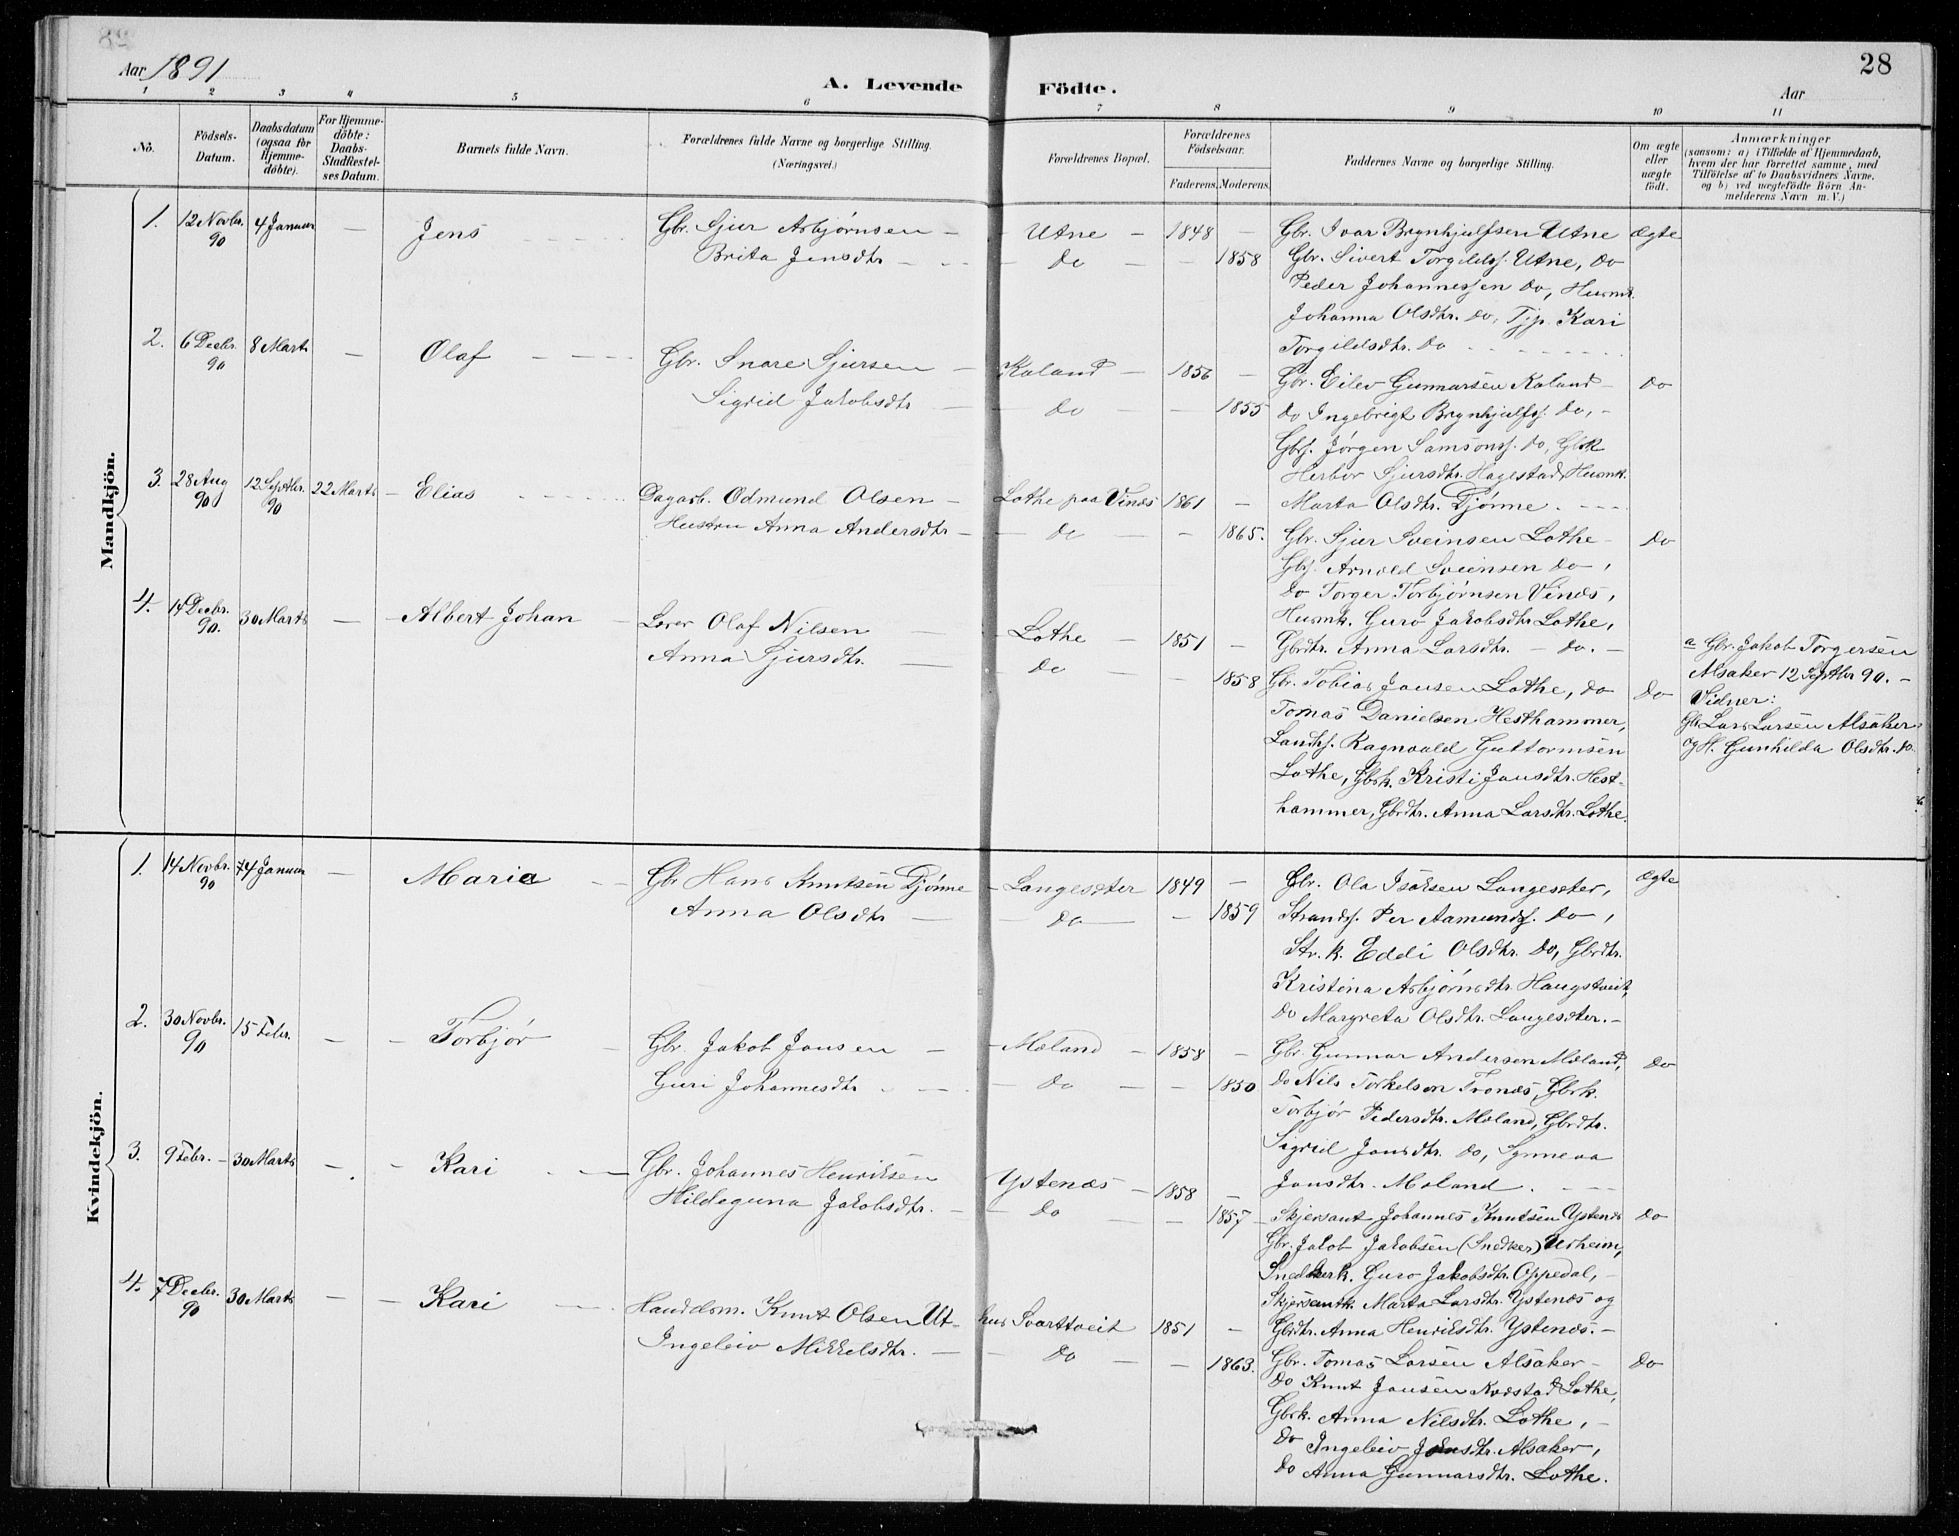 28
Aar 1891
A. Levende Födte.
Aar
1 2 3 4 5 6 7 8 9 10 11
No.
Födsels-Datum.
Daabsdatum (ogsaa for Hjemmedöbte).
For Hjemmedöbte: Daabs-Stadfæstelses Datum.
Barnets fulde Navn.
Forældrenes fulde Navne og borgerlige Stilling. (Næringsvei.)
Forældrenes Bopæl.
Forældrenes Födselsaar.
Faderens. Moderens.
Faddernes Navne og borgerlige Stilling.
Om ægte eller uægte födt.
Anmærkninger
(saasom: a) i Tilfælde af Hjemmedaab, hvem der har forrettet samme, med Tilföielse af to Daabsvidners Navne, og b) ved uægtefödte Börn Anmelderens Navn m. V.)
Mandkjön.
1. 12 Novbr. 90 4 Januar — Jens Gbr. Sjur Asbjørnsen — Utne — 1848 — Gbr. Ivar Brynhjulfsen Utne ægte
Brita Jensdtr — do — 1858 Gbr. Sivert Torgildss. Utne, do
Peder Johannessen do, Husmk.
Johanna Olsdtr. do, Tjp. Kari
Torgildsdtr. do
2. 6 Decbr. 90 8 Marts — Olaf Gbr. Snare Sjursen — Kaland — 1856 — Gbr. Eilev Gunnarsen Kaland — do
Sigrid Jakobsdtr — do — 1855 do Ingebrigt Brynhjulfss. do, -
Gbrs. Jørgen Samsonss. do, Gbrk
Herbor Sjursdtr. Hagestad, Husmk.
Marta Olsdtr. Djønne.
3 28 Aug 90 12 Septbr. 90 22 Marts - Elias Dagarb. Odmund Olsen — Lothe paa Vinæs 1861 —
Hustru Anna Andersdtr — do — 1865. Gbr. Sjur Sveinsen Lothe - do
Gbrs. Arnold Sveinsen do,
do Torger Torbjørnsen Vinæs,
Husmk. Guro Jakobsdtr Lothe,
Gbrdtr. Anna Larsdtr. — do. —
a Gbr. Jakob Torgersen
Alsaker 12 Septbr 90. -
Vidner:
Gbr. Lars Larsen Alsaker
og H. Gunhilda Olsdtr. do
4. 14 Decbr. 90. 30 Marts — Albert Johan — Lærer Olaf Nilsen — Lothe — 1851 —
Anna Sjursdtr. — do — 1858 Gbr. Tobias Jansen Lothe, do do
Tomas Danielsen Hesthammer,
Landhs. Ragnvald Guttormsen
Lothe, Gbrk. Kristi Jansdtr. Hest-
hammer, Gbrdtr. Anna Larsdtr. Lothe.
Kvindekjön.
1. 14 Novbr. 90 4 Januar — Maria — Gbr Hans Knutsen Djønne — Langesæter 1849 — Gbr. Ola Isaksen Langesæter, ægte
Anna Olsdtr — do — 1859 Strands. Per Aamunds. do,
Str. k. Eddi Olsdtr. do, Gbrdtr.
Kristina Asbjørnsdtr Haugstveit,
do Margreta Olsdtr. Langesæter. -
2. 30 Novbr. 90 15 Febr. — Torbjør — Gbr. Jakob Jansen — Mæland — 1858 — Gbr. Gunnar Andersen Mæland, do
Guri Johannesdtr — do — 1850 do Nils Torkelsen Tronæs, Gbrk.
Torbjør Pedersdtr. Mæland, Gbrdtr.
Sigrid Jansdtr. do, Synneva
Jansdtr. Mæland.
3. 9 Febr. — 30 Marts — Kari — Gbr. Johannes Henriksen Ystenæs — 1858 —
Hildeguna Jakobsdtr. — do — 1857 - Skjersant Johannes Knutsen Ystenæs do
Gbr. Jakob Jakobsen (Snedker) Urheim,
Snedkerk. Guro Jakobsdtr. Oppedal, -
Skjersantk. Marta Larsdtr. Ystenæs og
Gbrdtr. Anna Henriksdtr. Ystenæs. -
4. 7 Decbr. 90 30 Marts — Kari — Handelsm. Knut Olsen Ut- hus Svarttveit 1851 —
Ingeleiv Mikkelsdtr. — do — 1863. Gbr. Tomas Larsen Alsaker - do
do Knut Jansen Kvæstad Lothe,
Gbrk. Anna Nilsdtr. Lothe, -
do Ingeleiv Jonsdtr. Alsaker,
do Anna Gunnarsdtr. Lothe.